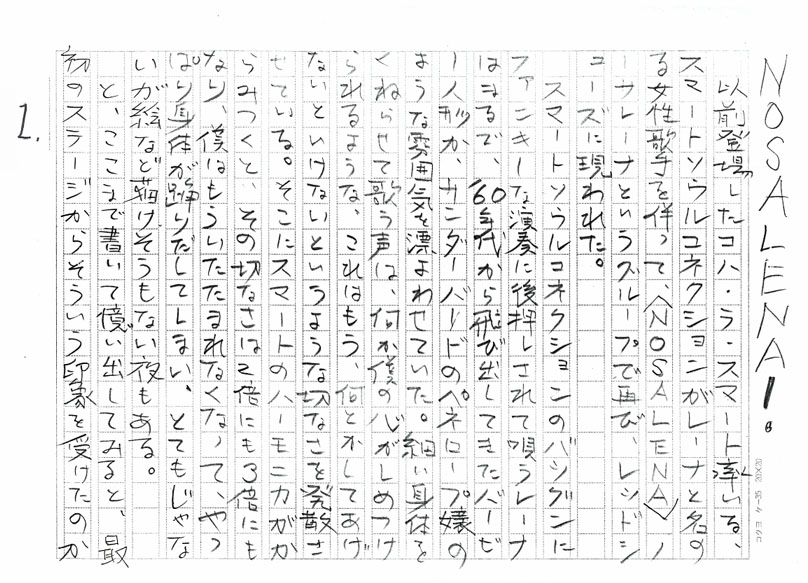 NOSALENA!。
以前登場したコハ・ラ・スマート率いる、
スマートソウルコネクションがレーナと名の
る女性歌手を伴って、〈NOSALENA〉ノ
ーサレーナというグループで再び、レッドシ
ューズに現われた。
スマートソウルコネクションのバツグンに
ファンキーな演奏に後押しされて唄うレーナ
はまるで、'60年代から飛び出してきたバービ
ー人形か、サンダーバードのペネロープ嬢の
ような雰囲気を漂よわせていた。細い身体を
くねらせて歌う声は、何か僕の心がしめつけ
られるような、これはもう、何とかしてあげ
ないといけないというような切なさを発散さ
せている。そこにスマートのハーモニカがか
らみつくと、その切なさは2倍にも3倍にも
なり、僕はもういたたまれなくなって、やっ
ぱり身体が踊りだしてしまい、とてもじゃな
いが絵など描けそうもない夜もある。
と、ここまで書いて憶い出してみると、最
初のステージからそういう印象を受けたのか
1.
コクヨ ケー35 20×20